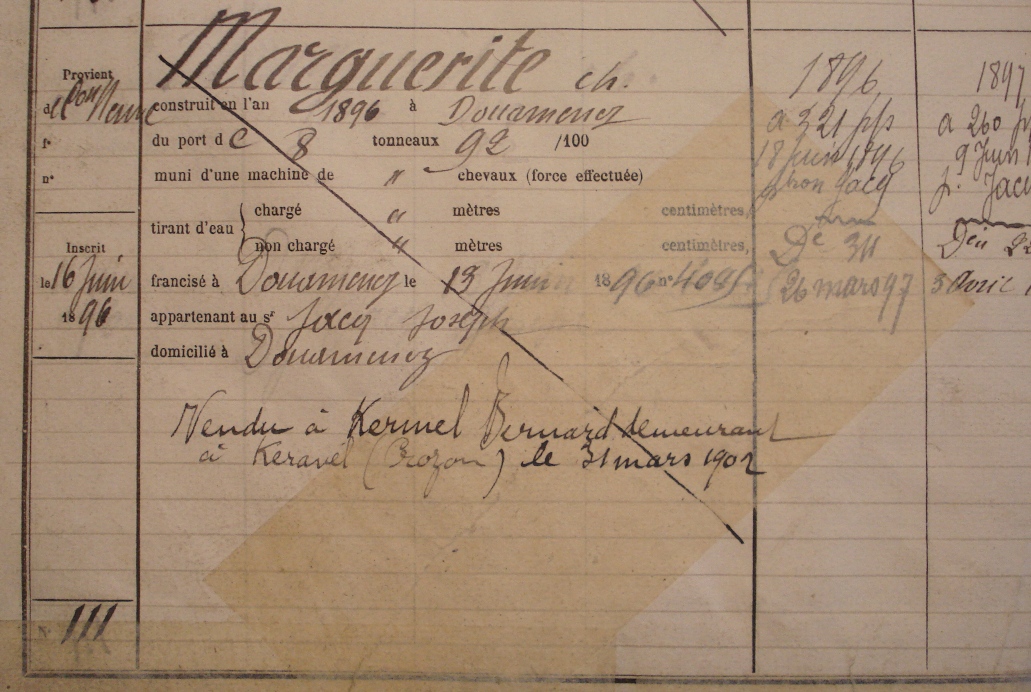 Marguerite ch.
Provient
de Con Neuve
construit en l'an 1896 à Douarnenez
fº
du port de 8 tonneaux 92 /100
nº
muni d'une machine de " chevaux (force effectuée)
tirant d'eau { chargé " mètres centimètres,
non chargé " mètres centimètres,
Inscrit
le 16 Juin
1896
francisé à Douarnenez le 13 Juin 1896 nº
appartenant au sr Jacq Joseph
domicilié à Douarnenez
Vendu à Kermel Bernard demeurant
à Keravel (Crozon) le 31 mars 1902
Nº 111
1896
a 321 pps
18 Juin 1896
pron Jacq
Dº 311
26 mars 97
1897
a 260
9 Juin
p. Jacq
3 Avril